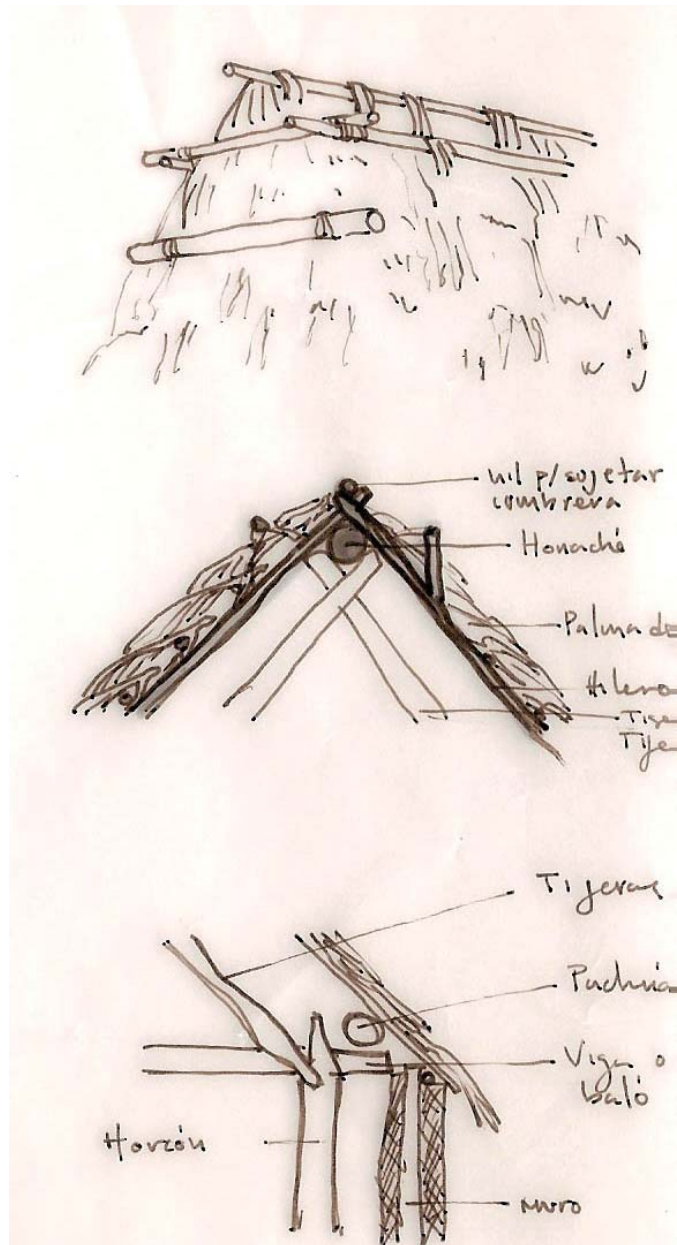 hil p/sujetar
cumbrera
Honaché
Palma de
Hilera
Tije
Tijeras
Viga o
baló
Horcón
muro